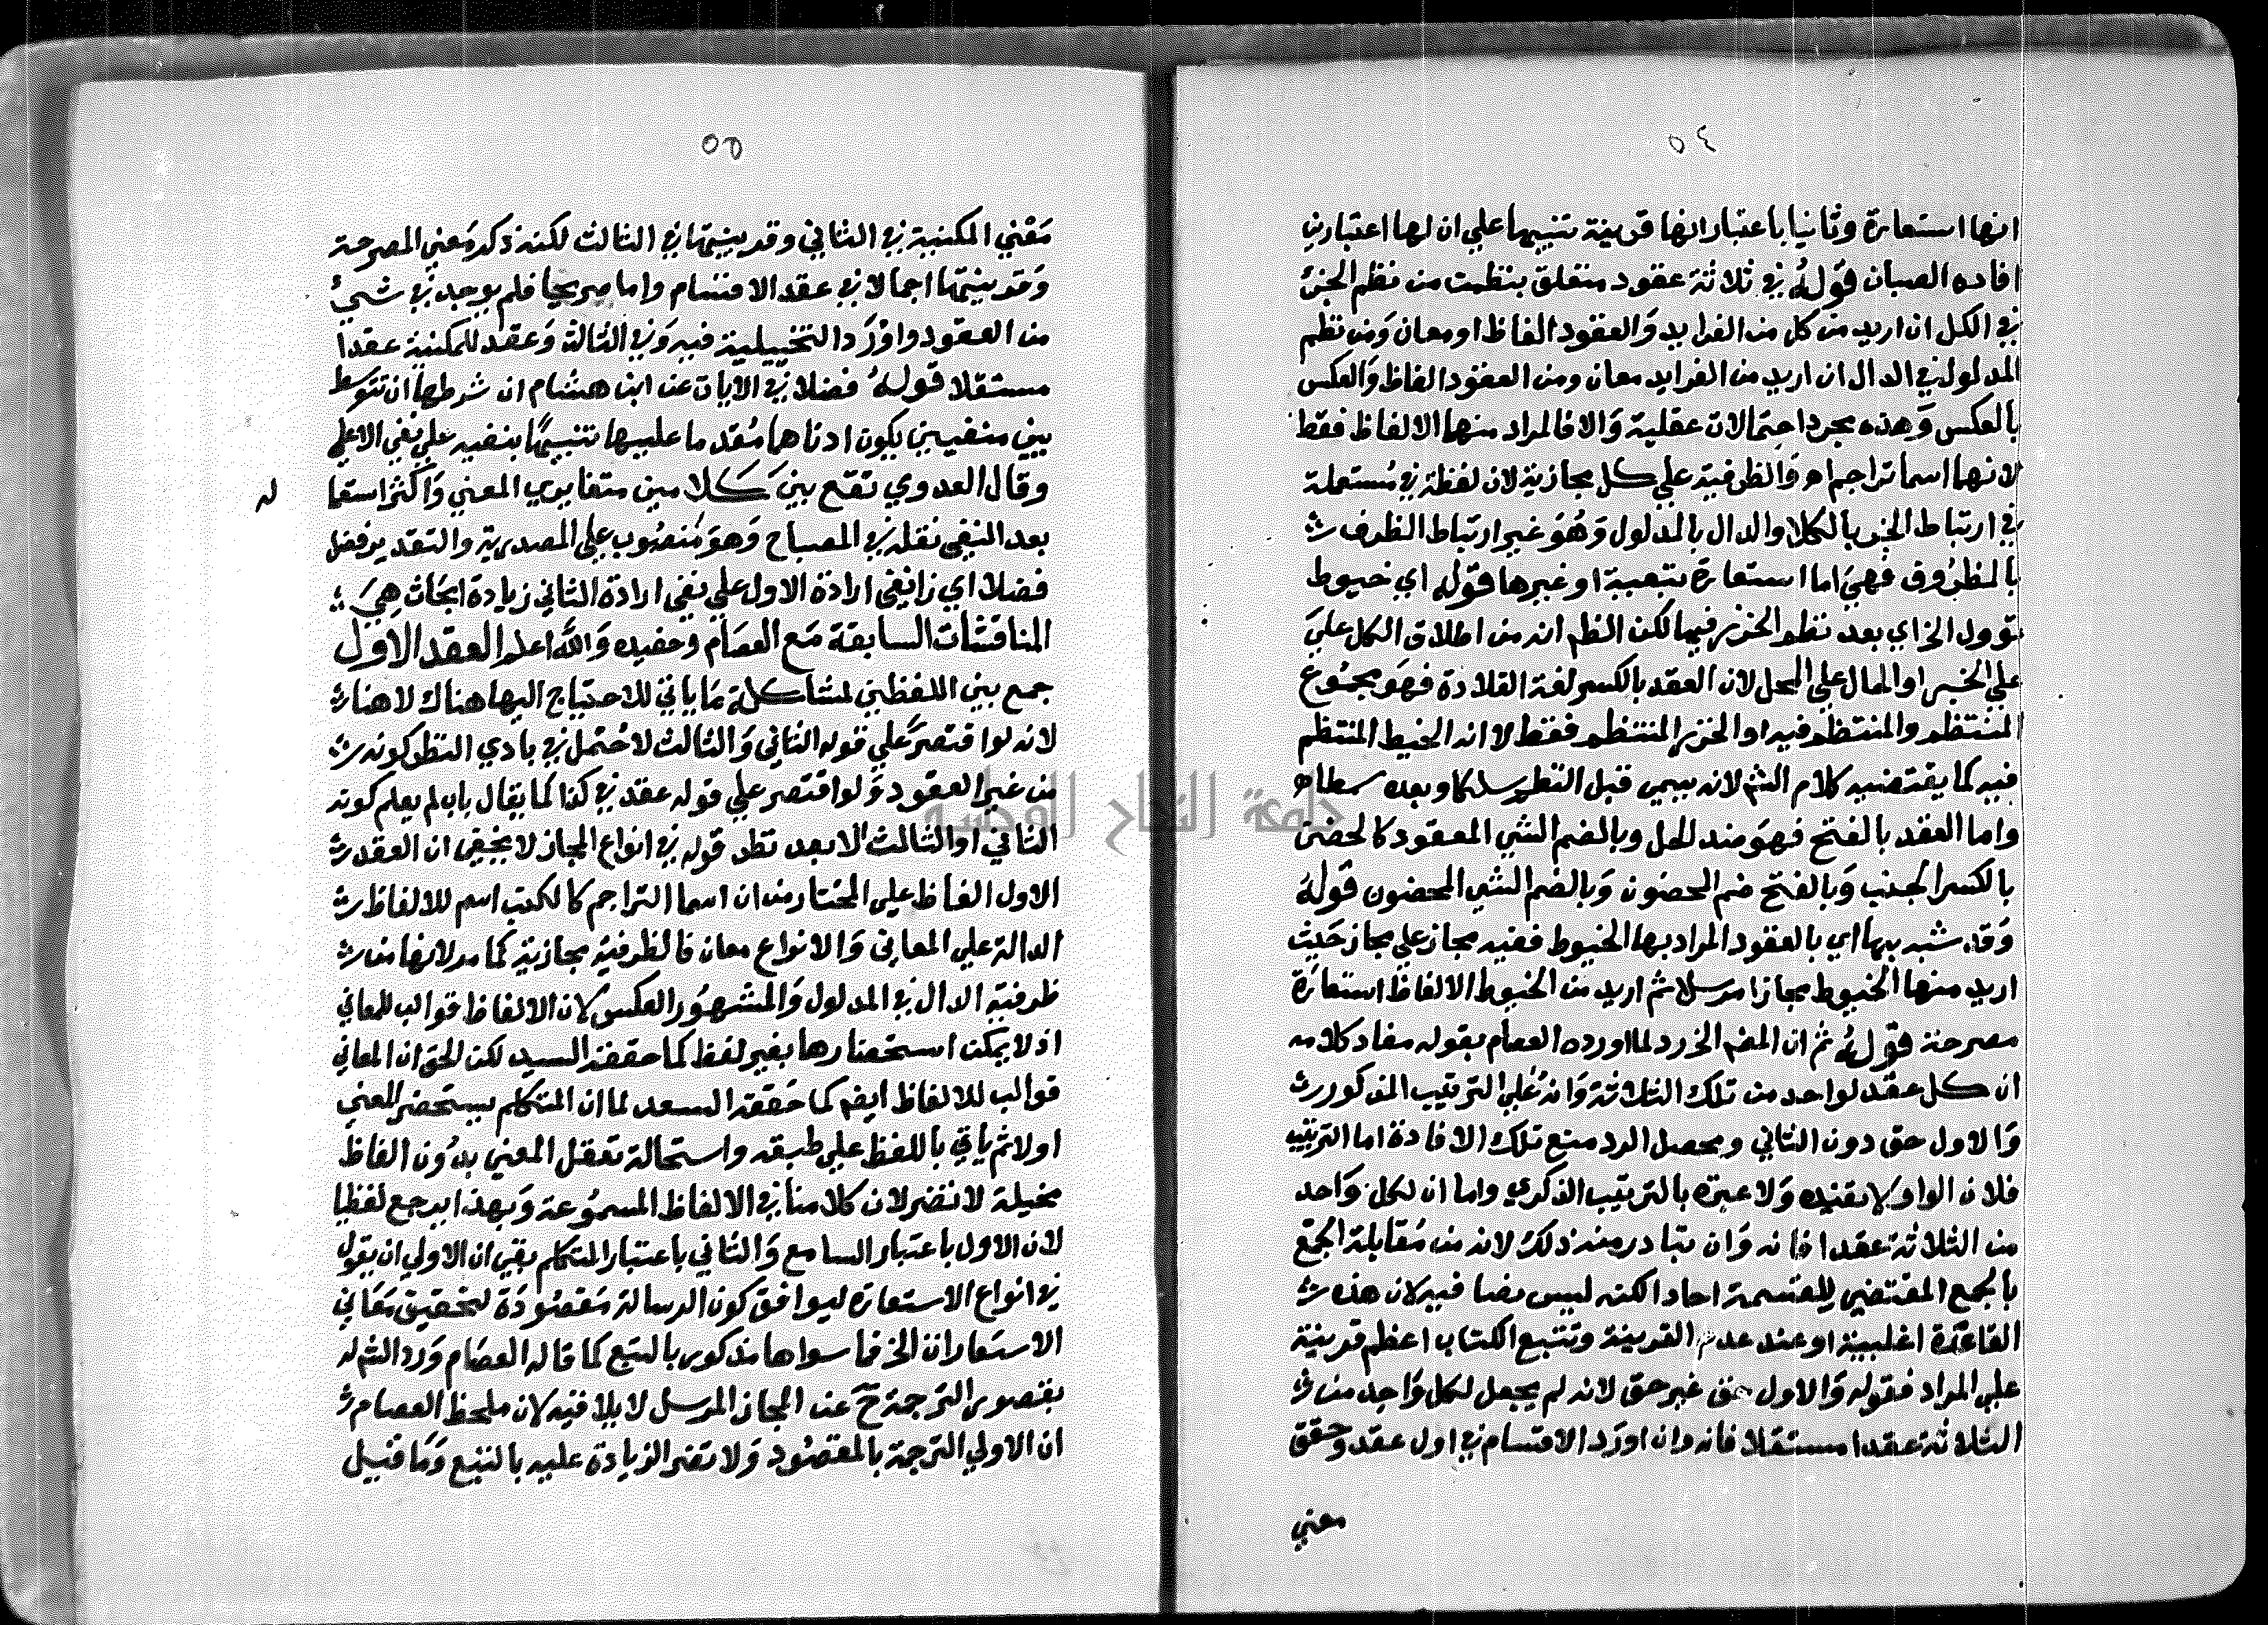 ٥٤
انها استعارة وثانيا باعتبار انها قرينة تنبيها علي ان لها اعتبارين
افاده الصبان قوله في ثلاثة عقود متعلق بنظمت من نظم الجزئ
في الكل ان اريد من كل من الفرايد والعقود الفاظ او معان ومن نظم
المدلول في الدال ان اريد من الفرايد معان ومن العقود الفاظ والعكس
بالعكس وهذه مجرد احتمالات عقلية والا فالمراد منها الالفاظ فقط
لانها اسما تراجم اه والظرفية علي كل مجازية لان لفظة في مستعملة
في ارتباط الجزء بالكل او الدال بالمدلول وهو غير ارتباط الظرف
بالمظروف فهي اما استعارة تبعية او غيرها قوله اي خيوط
تؤول الخ اي بعد نظم الخرز فيها لكن الظم انه من اطلاق الكل علي
علي الجزء او الحال علي المحل لان العقد بالكسر لغة القلادة فهو مجموع
المنتظم والمنتظم فيه او الخرز المنتظم فقط لا انه الخيط المنتظم
فيه كما يقتضيه كلام الشم لانه يسمي قبل النظم سلكا وبعده سمطا اه
واما العقد بالفتح فهو ضد الحل وبالضم الشي المعقود كالحضن
بالكسر الجنب وبالفتح ضم المحضون وبالضم الشي المحضون قوله
وقد شبه بها اي بالعقود المراد بها الخيوط ففيه مجاز علي مجاز حيث
اريد منها الخيوط مجازا مرسلا ثم اريد من الخيوط الالفاظ استعارة
مصرحة قوله ثم ان المضم الخ رد لما اورده العصام بقوله مفاد كلامه
ان كل عقد لواحد من تلك الثلاثة وانه علي الترتيب المذكور
والاول حق دون الثاني ومحصل الرد منع تلك الافادة اما الترتيب
فلان الواو لا تفيده ولا عبرة بالترتيب الذكري واما ان لكل واحد
من الثلاثة عقدا فانه وان تبادر منه ذلك لانه من مقابلة الجمع
بالجمع المقتضي للقسمة احادا لكنه ليس نصا فيه لان هذه
القاعدة اغلبية او عند عدم القرينة وتتبع الكتاب اعظم قرينة
علي المراد فقوله والاول حق غير حق لانه لم يجعل لكل واحد من
الثلاثة عقدا مستقلا فانه وان اورد الاقسام في اول عقد وحقق
معني
٥٥
معني المكنية في الثاني وقد بينهما في الثالث لكنه ذكر معني المصرحة
وقد بينهما اجمالا في عقد الاقسام واما صريحا فلم يوجد في شيء
من العقود واورد التخييلية فيه وفي الثالث وعقد للمكنية عقدا
مستقلا قوله فضلا في الايات عن ابن هشام ان شرطها ان تتوسط
بين منفيين يكون ادناهما مقدما عليها تنبيها بنفيه علي نفي الاعلي
وقال العدوي تقع بين كلامين متغايري المعني واكثر استعما
له
بعد النفي نقله في المصباح وهو منصوب علي المصدرية والتقدير فضل
فضلا اي زاد نفي ارادة الاول علي نفي ارادة الثاني زيادة ابحاث هي
المناقشات السابقة مع العصام وحفيده والله اعلم العقد الاول
جمع بين اللفظين لمشاكلة ما ياتي للاحتياج اليها هناك لا هنا
لانه لو اقتصر علي قوله الثاني والثالث لاحتمل في بادي النظر كونه
من غير العقود ولو اقتصر علي قوله عقد في كذا كما يقال باب لم يعلم كونه
الثاني او الثالث الا بعد نظر قوله في انواع المجاز لا يخفي ان العقد
الاول الفاظ علي المختار من ان اسما التراجم كالكتب اسم للالفاظ
الدالة علي المعاني والانواع معان فالظرفية مجازية كما مر لانها من
ظرفية الدال في المدلول والمشهور العكس لان الالفاظ قوالب للمعاني
اذ لا يمكن استحضارها بغير لفظ كما حققه السيد لكن الحق ان المعاني
قوالب للالفاظ ايضم كما حققه السعد لما ان المتكلم يستحضر المعني
اولا ثم ياتي باللفظ علي طبقه واستحالة تعقل المعني بدون الفاظ
مخيلة لا تضر لان كلامنا في الالفاظ المسموعة وبهذا يرجع لفظيا
لان الاول باعتبار السامع والثاني باعتبار المتكلم بقي ان الاولي ان يقول
في انواع الاستعارة ليوافق كون الرسالة مقصودة لتحقيق معاني
الاستعارات الخ فما سواها مذكور بالتبع كما قاله العصام ورد الشم له
بقصور الترجمة ح عن المجاز المرسل لا يلاقيه لان ملحظ العصام
ان الاولي الترجمة بالمقصود ولا تضر الزيادة عليه بالتبع وما قبيل